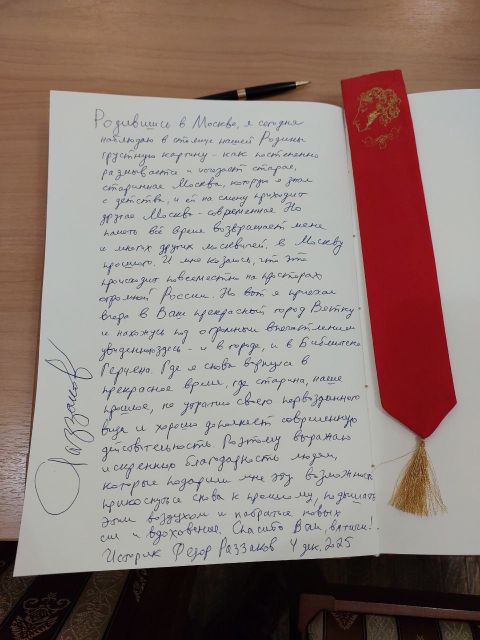 Родившись в Москве, я сегодня
наблюдаю в столице нашей Родины
грустную картину - как постепенно
размывается и исчезает старая,
старинная Москва, которую я знал
с детства, и ей на смену приходит
другая Москва - современная. Но
память всё время возвращает меня
и многих других москвичей, в Москву
прошлого. И мне казалось, что это
происходит повсеместно на просторах
огромной России. Но вот я приехал
сюда в Ваш прекрасный город Вятку
и нахожусь под огромным впечатлением
увиденного здесь - и в городе, и в Библиотеке
Герцена. Где я снова вернулся в
прекрасное время, где старина, наше
прошлое, не утратило своего первозданного
вида и хорошо дополняет современную
действительность. Поэтому выражаю
искреннюю благодарность людям,
которые подарили мне эту возможность
прикоснуться снова к прошлому, подышать
этим воздухом и набраться новых
сил и вдохновение. Спасибо Вам, вятичи!
Историк Федор Раззаков 4 дек. 2025
Раззаков